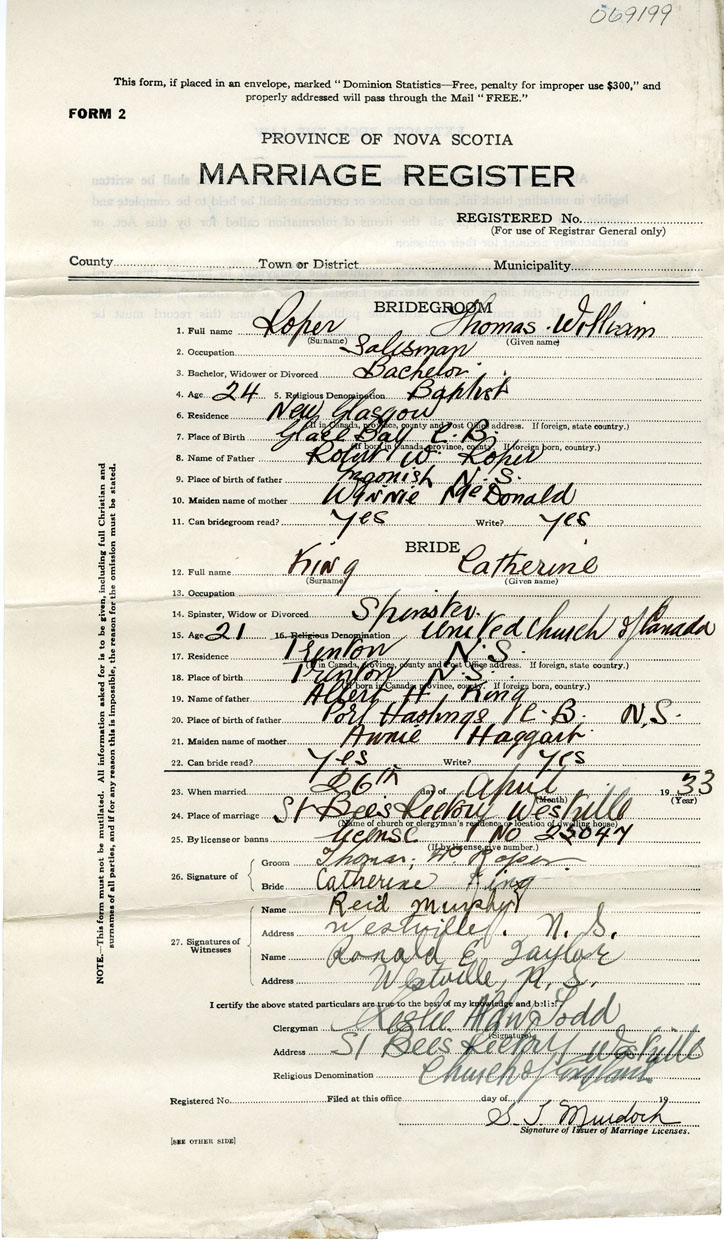 069199
This form, if placed in an envelope, marked "Dominion Statistics—Free, penalty for improper use $300," and
properly addressed will pass through the Mail "FREE."
FORM 2
PROVINCE OF NOVA SCOTIA
MARRIAGE REGISTER
REGISTERED No.
(For use of Registrar General only)
County Town or District Municipality
BRIDEGROOM
1. Full name Roper Thomas William
(Surname) (Given name)
2. Occupation Salesman
3. Bachelor, Widower or Divorced Bachelor
4. Age 24 5. Religious Denomination Baptist
6. Residence New Glasgow
(If in Canada, province, county and Post Office address. If foreign, state country.)
7. Place of Birth Glace Bay C.B.
(If born in Canada, province, county. If foreign born, country.)
8. Name of Father Robert W. Roper
9. Place of birth of father Ingonish N.S.
10. Maiden name of mother Winnie McDonald
11. Can bridegroom read? Yes Write? Yes
BRIDE
12. Full name King Catherine
(Surname) (Given name)
13. Occupation
14. Spinster, Widow or Divorced Spinster
15. Age 21 16. Religious Denomination United Church of Canada
17. Residence Trenton N.S.
(If in Canada, province, county and Post Office address. If foreign, state country.)
18. Place of birth Trenton N.S.
(If born in Canada, province, county. If foreign born, country.)
19. Name of father Albert H King
20. Place of birth of father Port Hastings C.B. N.S.
21. Maiden name of mother Annie Haggart
22. Can bride read? Yes Write? Yes
23. When married 26th day of April 1933
(Month) (Year)
24. Place of marriage St Bees Rectory Westville
(Name of church or clergyman's residence or location of dwelling house)
25. By license or banns License No 23047
(If by license, give number.)
26. Signature of Groom Thomas W Roper
Bride Catherine King
27. Signatures of Witnesses
Name Reid Murphy
Address Westville. N.S.
Name Ronald E Taylor
Address Westville, N.S.
I certify the above stated particulars are true to the best of my knowledge and belief
Clergyman Leslie Todd
(Signature)
Address St Bees Rectory Westville
Religious Denomination Church of England
Registered No. Filed at this office day of 19
S. J. Murdoch
Signature of Issuer of Marriage Licenses.
[SEE OTHER SIDE]
NOTE.—This form must not be mutilated. All information asked for is to be given, including full Christian and
surnames of all parties, and if for any reason this is impossible, the reason for the omission must be stated.